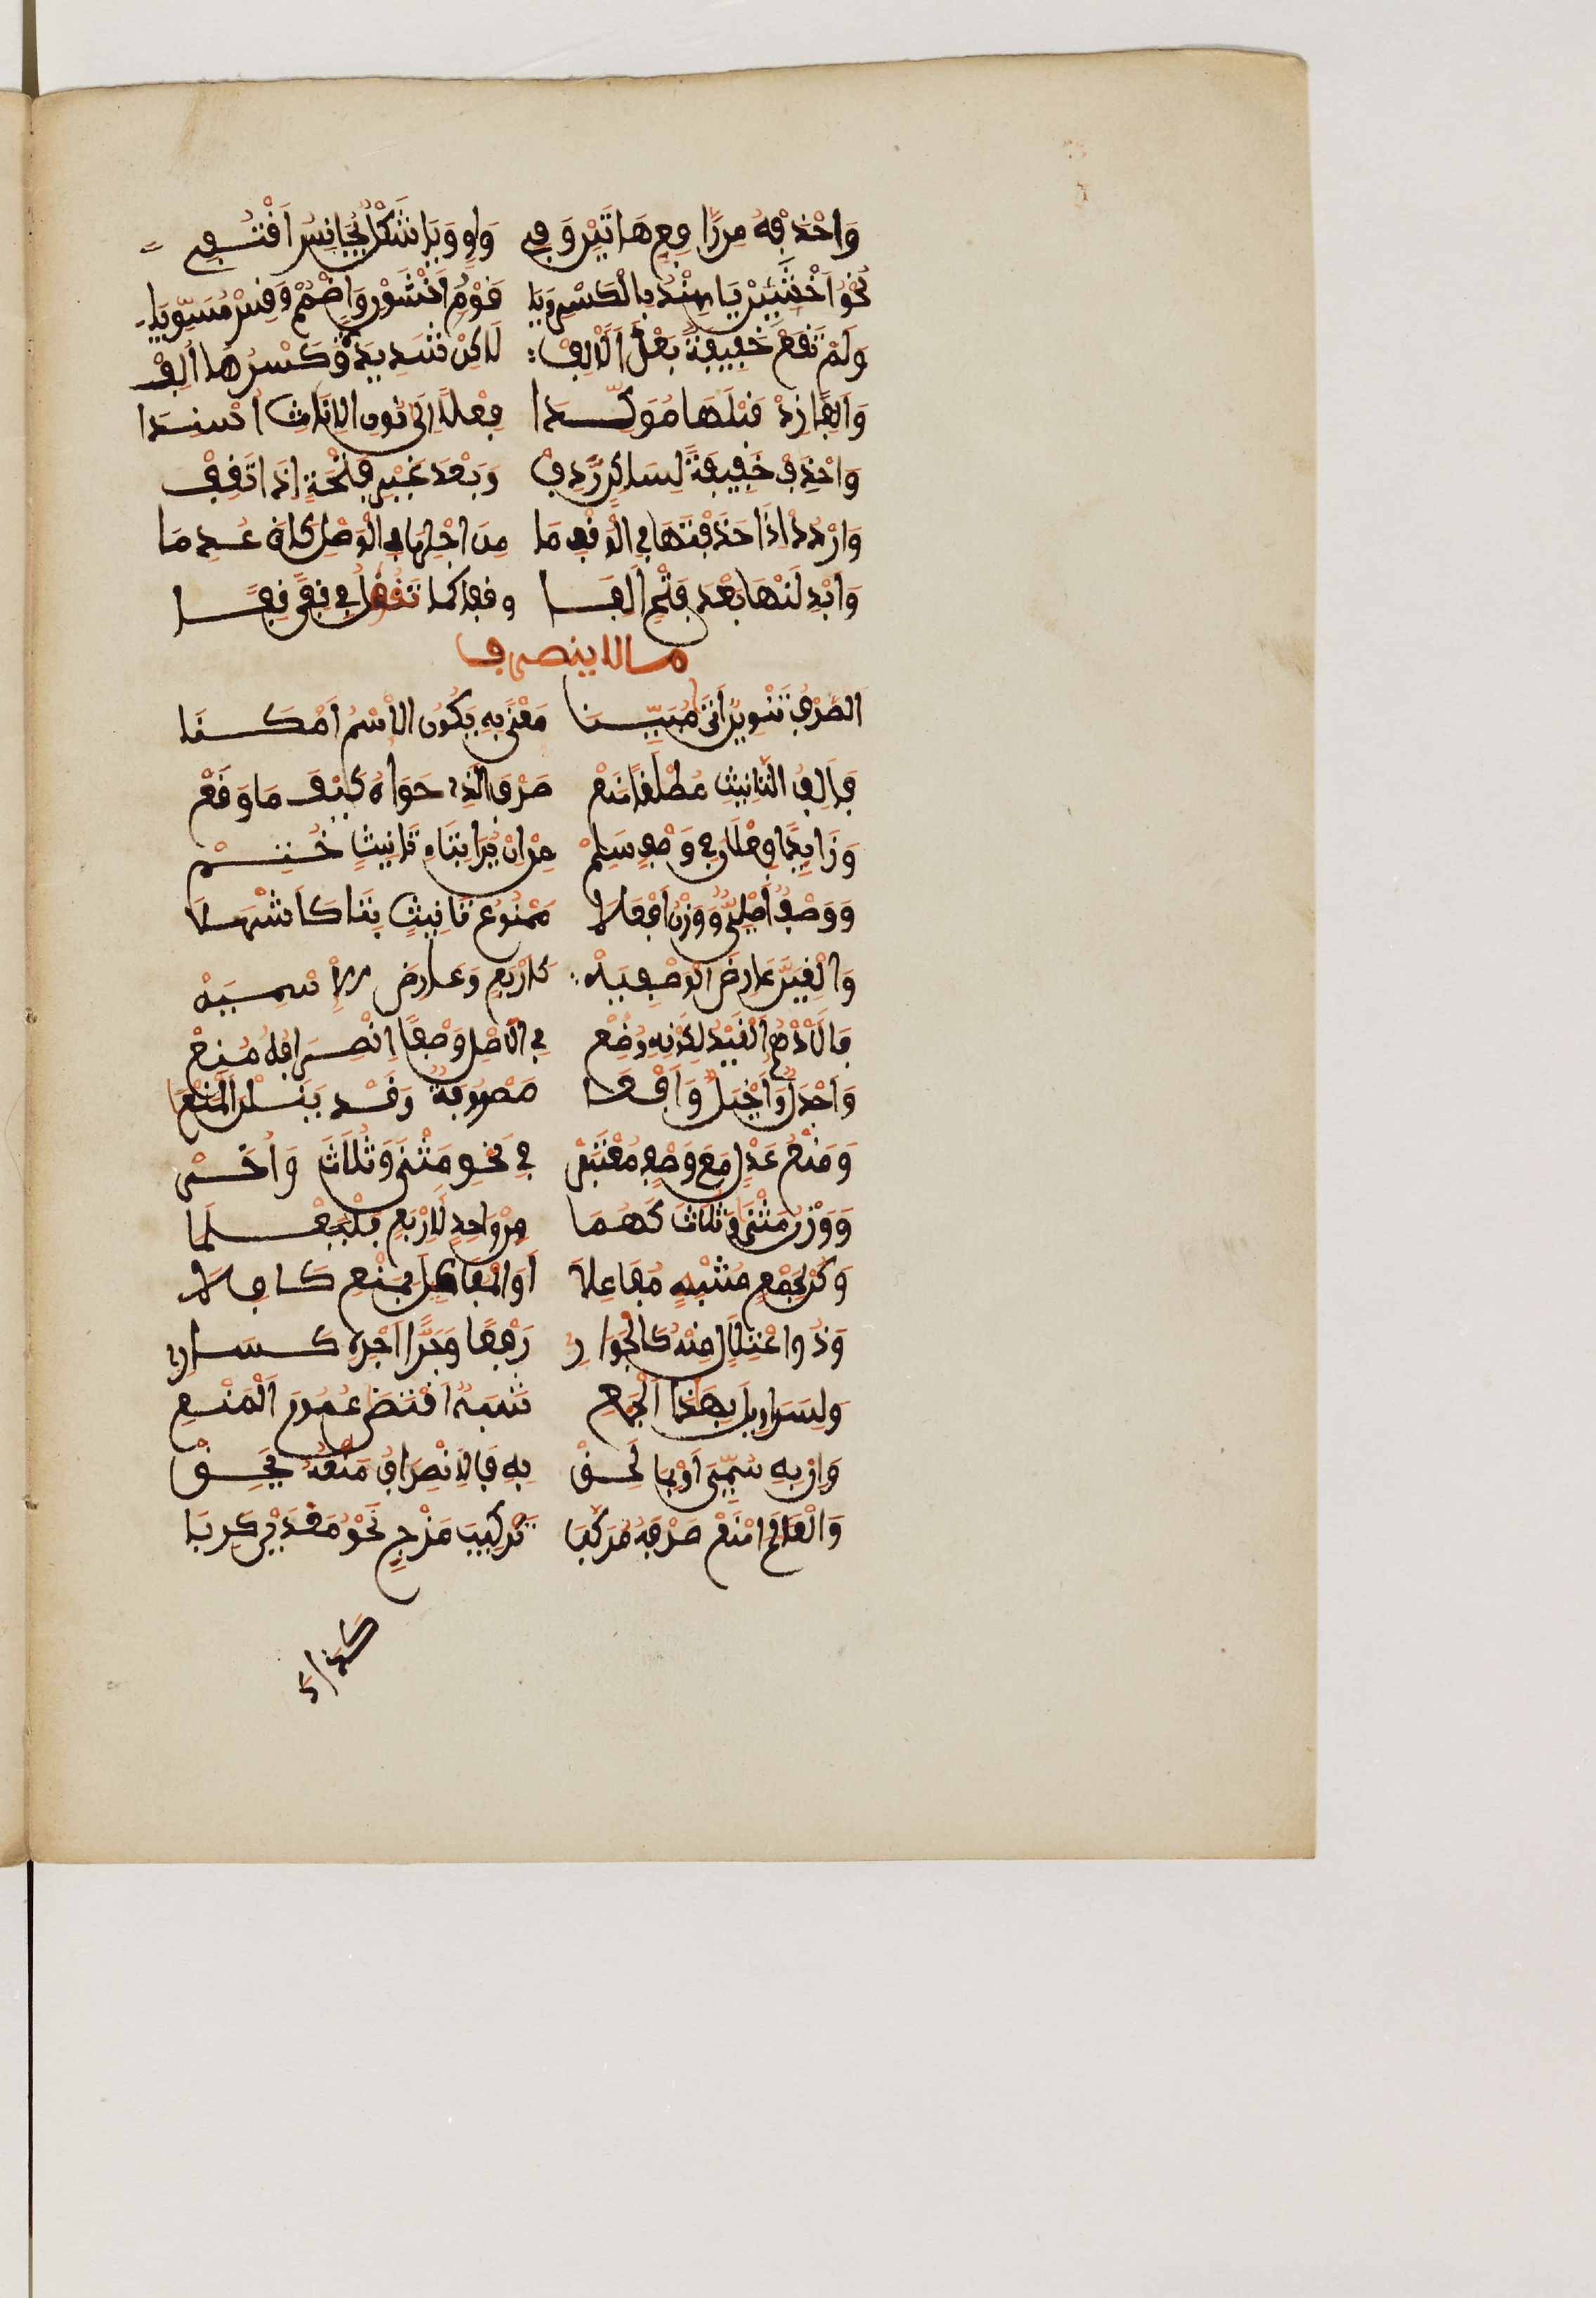 وَاحْذِفْهُ مِن رَّافِعِ هَاتَيْنِ وَفِي وَاوٍ وَيَا شَكْلٌ مُّجَانِسٌ اقْتُفِي
نَحْوُ اخْشَيِنْ يَا هِنْدُ بِالْكَسْرِ وَيَا قَوْمُ اخْشَوُنْ وَاضْمُمْ وَقِسْ مُسَوِّيَا
وَلَمْ تَقَعْ خَفِيفَةٌ بَعْدَ الْأَلِفْ لَاكِنْ شَدِيدَةٌ وَكَسْرُهَا أُلِفْ
وَأَلِفًا زِدْ قَبْلَهَا مُوَكِّدَا فِعْلًا إِلَى نُونِ الْإِنَاثِ أُسْنِدَا
وَاحْذِفْ خَفِيفَةً لِسَاكِنٍ رَّدِفْ وَبَعْدَ غَيْرِ فَتْحَةٍ إِذَا تَقِفْ
وَارْدُدْ إِذَا حَذَفْتَهَا فِي الْوَقْفِ مَا مِنَ اجْلِهَا فِي الْوَصْلِ كَانَ عُدِمَا
وَأَبْدِلَنْهَا بَعْدَ فَتْحٍ أَلِفَا وقفا كما تَقُولُ فِي قِفَنْ قِفَا
ما لا ينصرف
الصَّرْفُ تَنْوِينٌ أَتَى مُبَيِّنَا مَعْنًى بِهِ يَكُونُ الِاسْمُ أَمْكَنَا
فَأَلِفُ التَّأْنِيثِ مُطْلَقًا مَنَعْ صَرْفَ الَّذِي حَوَاهُ كَيْفَ مَا وَقَعْ
وَزَايِدَا فَعْلَانَ فِي وَصْفٍ سَلِمْ مِنْ أَنْ يُرَى بِتَاءِ تَأْنِيثٍ خُتِمْ
وَوَصْفٌ أَصْلِيٌّ وَوَزْنُ أَفْعَلَا مَمْنُوعَ تَأْنِيثٍ بِتَا كَأَشْهَلَا
وَأَلْغِيَنَّ عَارِضَ الْوَصْفِيَّهْ كَأَرْبَعٍ وَعَارِضَ الْإِسْمِيَّهْ
فَالْأَدْهَمُ الْقَيْدُ لِكَوْنِهِ وُضِعْ فِي الْأَصْلِ وَصْفًا انْصِرَافُهُ مُنِعْ
وَأَجْدَلٌ وَأَخْيَلٌ وَأَفْعَى مَصْرُوفَةٌ وَقَدْ يَنَلْنَ الْمَنْعَا
وَمَنْعُ عَدْلٍ مَعَ وَصْفٍ مُعْتَبَرْ فِي نَحْوِ مَثْنَى وَثُلَاثَ وَأُخَرْ
وَوَزْنُ مَثْنَى وَثُلَاثَ كَهُمَا مِنْ وَاحِدٍ لِأَرْبَعٍ فَلْيُعْلَمَا
وَكُنْ لِجَمْعٍ مُشْبِهٍ مَفَاعِلَا أَوِ الْمَفَاعِيلَ بِمَنْعٍ كَافِلَا
وَذَا اعْتِلَالٍ مِنْهُ كَالْجَوَارِي رَفْعًا وَجَرًّا أَجْرِهِ كَسَارِي
وَلِسَرَاوِيلَ بِهَذَا الْجَمْعِ شَبَهٌ اقْتَضَى عُمُومَ الْمَنْعِ
وَإِنْ بِهِ سُمِّيَ أَوْ بِمَا لَحِقْ بِهِ فَالِانْصِرَافُ مَنْعُهُ يَحِقْ
وَالْعَلَمَ امْنَعْ صَرْفَهُ مُرَكَّبَا تَرْكِيبَ مَزْجٍ نَحْوُ مَعْدِيكَرِبَا